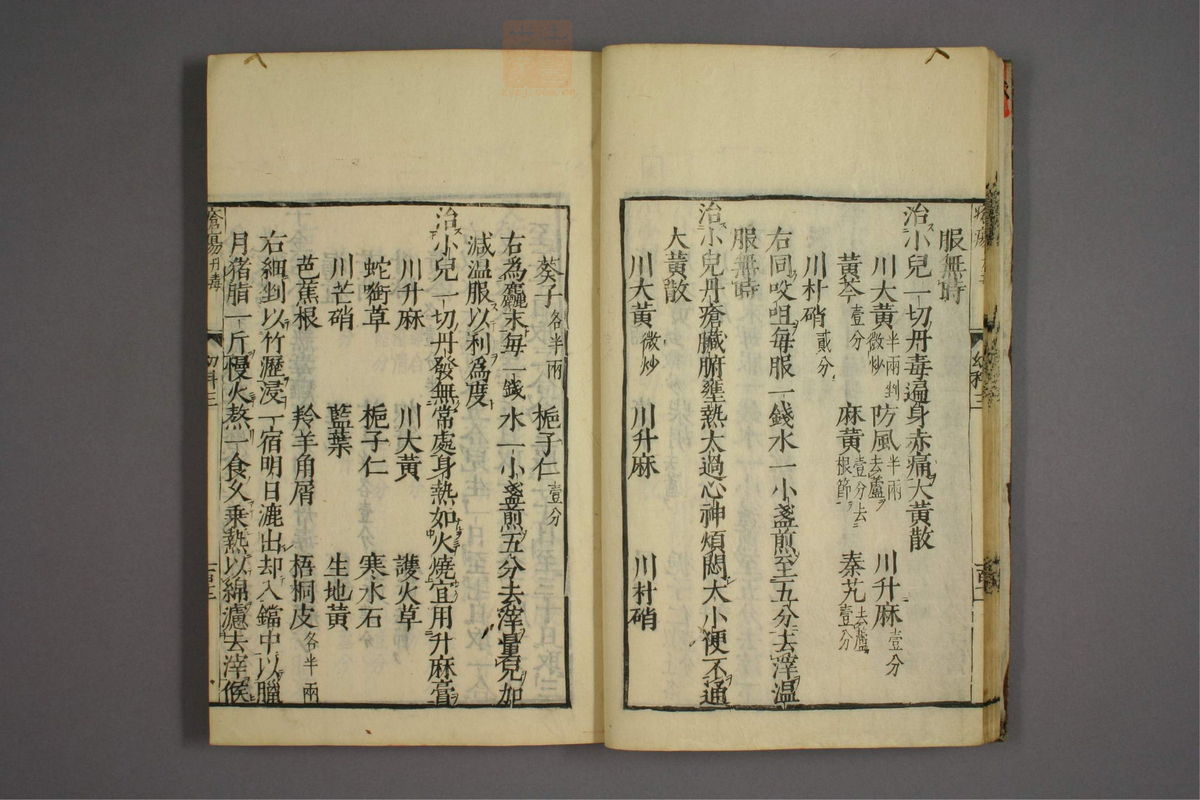 服無時
治小兒一切丹毒遍身赤痛大黃散
川大黃半兩剉微炒 防風半兩去蘆 川升麻壹分
黃芩壹分 麻黃壹分去根節 秦艽去蘆壹分
川朴硝貳分
右同㕮咀每服一錢水一小盞煎至五分去滓溫
服無時
治小兒丹瘡臟腑壅熱太過心神煩悶大小便不通
大黃散
川大黃微炒 川升麻 川朴硝
葵子各半兩 梔子仁壹分
右為麤末每一錢水一小盞煎五分去滓量兒加
減温服以利為度
治小兒一切丹發無常處身熱如火燒宜用升麻膏
川升麻 川大黃 護火草
蛇銜草 梔子仁 寒水石
川芒硝 藍葉 生地黃
芭蕉根 羚羊角屑 梧桐皮各半兩
右細剉以竹瀝浸一宿明日漉出却入鐺中以臘
月猪脂一斤慢火熬一食久乘熱以綿濾去滓候
瘡瘍丹毒 幼科三